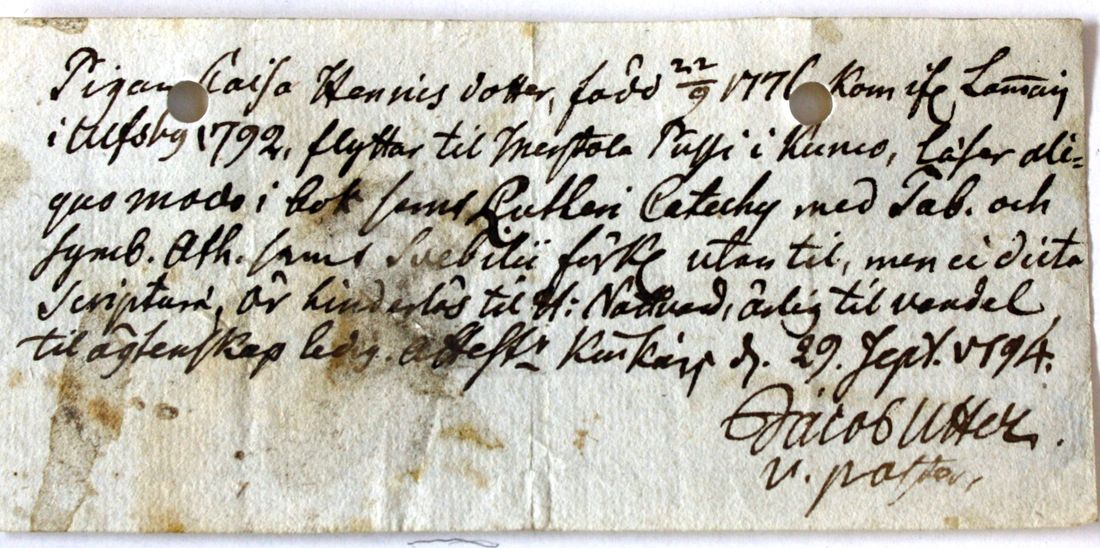 Pigan Caisa Henrics dotter, född 22/9 1776 kom ifr Lammais
i Ulfsby 1792, flyttar til Merstola Pussi i Kumo, läser ali=
quo modo i bok samt Lutheri Catechs med Tab. och
Symb. Ath. samt Svebilii förkl utan til, men ei dicta
Scripturæ, är hinderlös til H: Nattvard, ärlig til vandel,
til ägtenskap ledig. Attest:r d. 29. Sept. 1794.
Jacob Utter.
v. pastor.